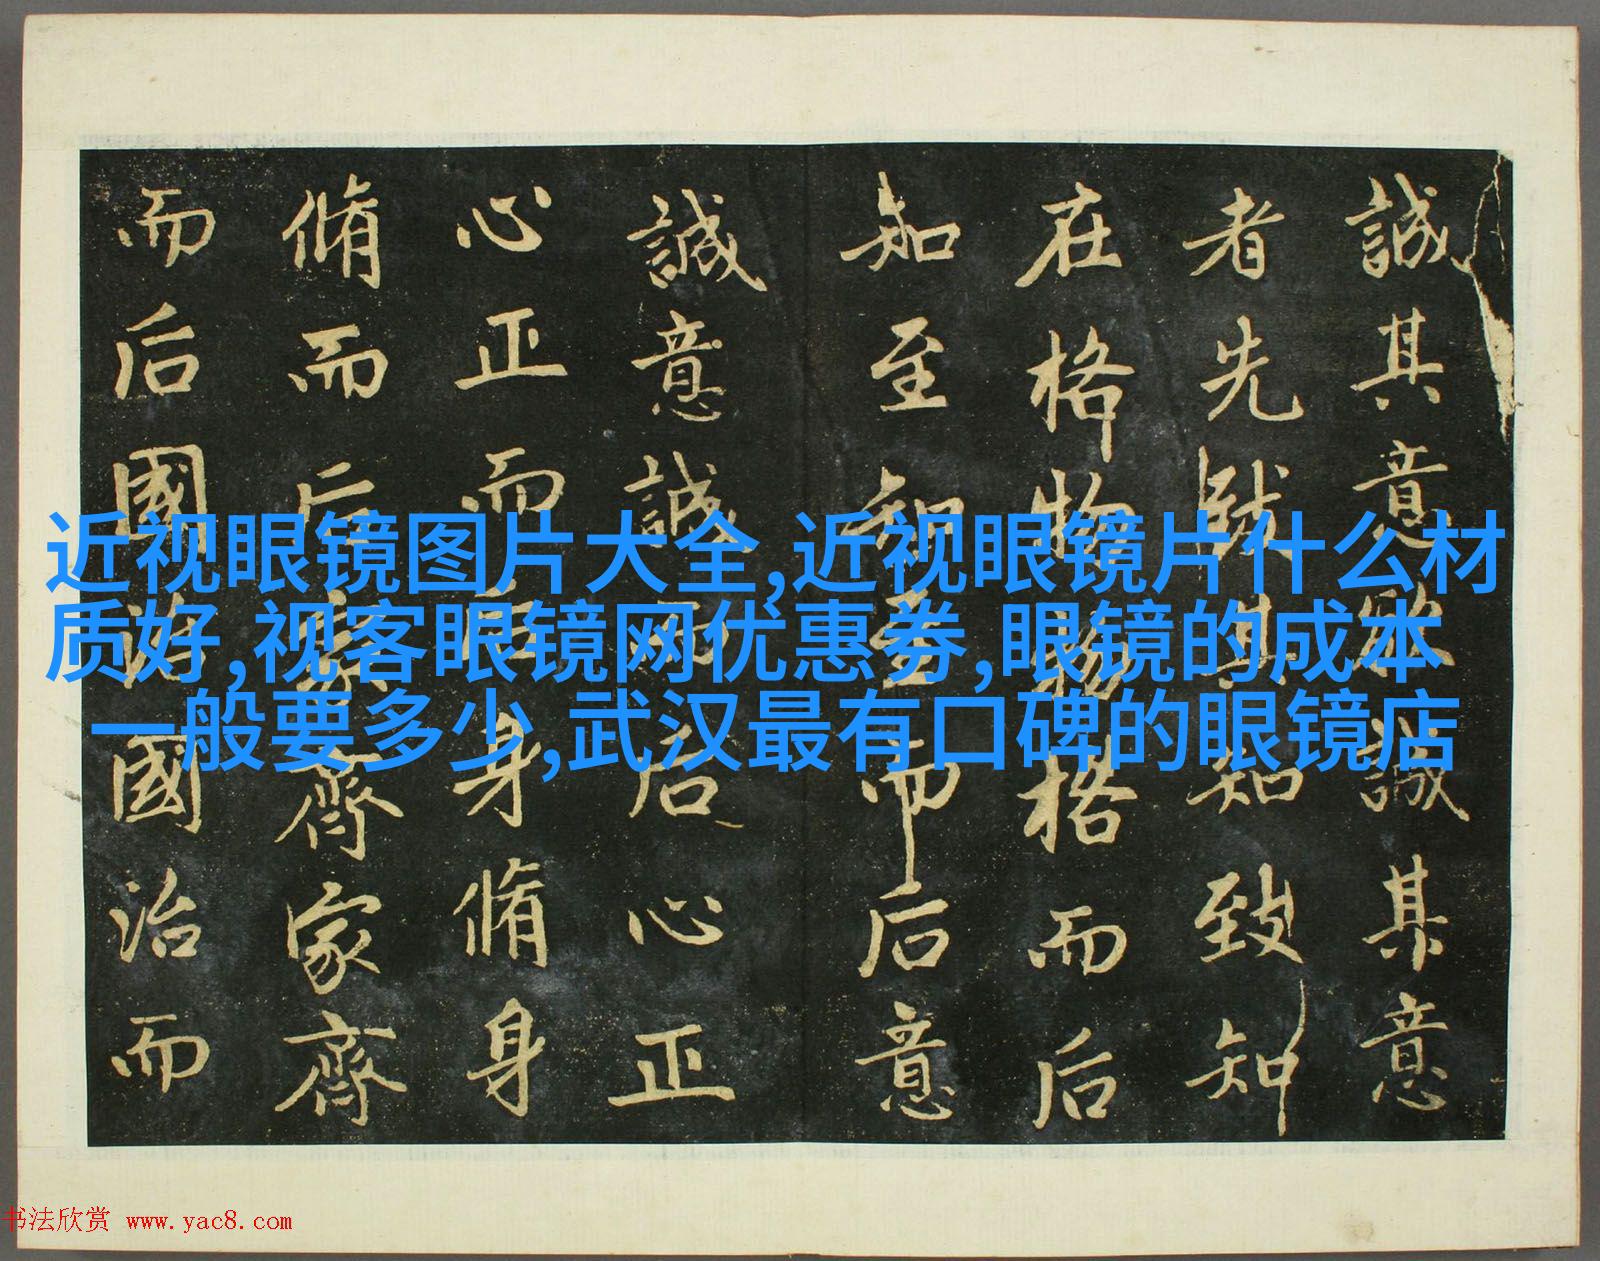 誠其意欲誠其意
者先致其知致知
在格物物格而后
知至知至而后意
誠意誠而后心正
心正而后身脩身
脩而后家齊家齊
而后國治國治而
近视眼镜图片大全,近视眼镜片什么材
质好,视客眼镜网优惠券,眼镜的成本
一般要多少,武汉最有口碑的眼镜店
书法欣赏 www.yac8.com